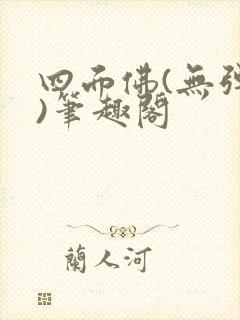 四面佛(無彈
)筆趣閣
蘭人河